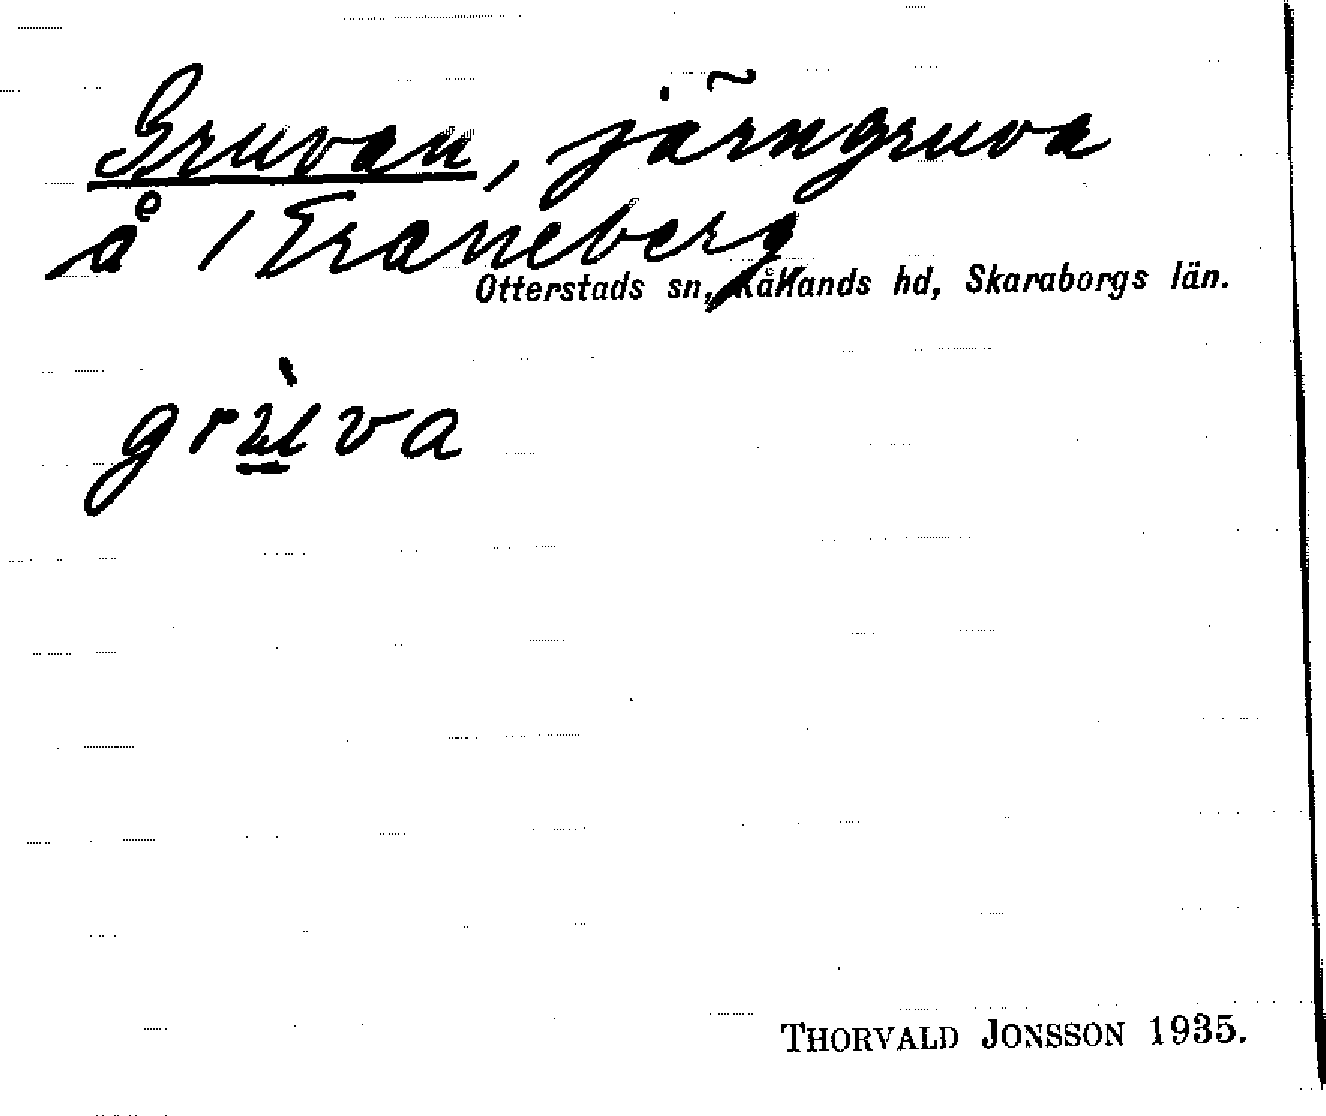 Gruvan, järngruva
å 1 Traneberg
Otterstads sn, Kållands hd, Skaraborgs län.
grùva
THORVALD JONSSON 1935.